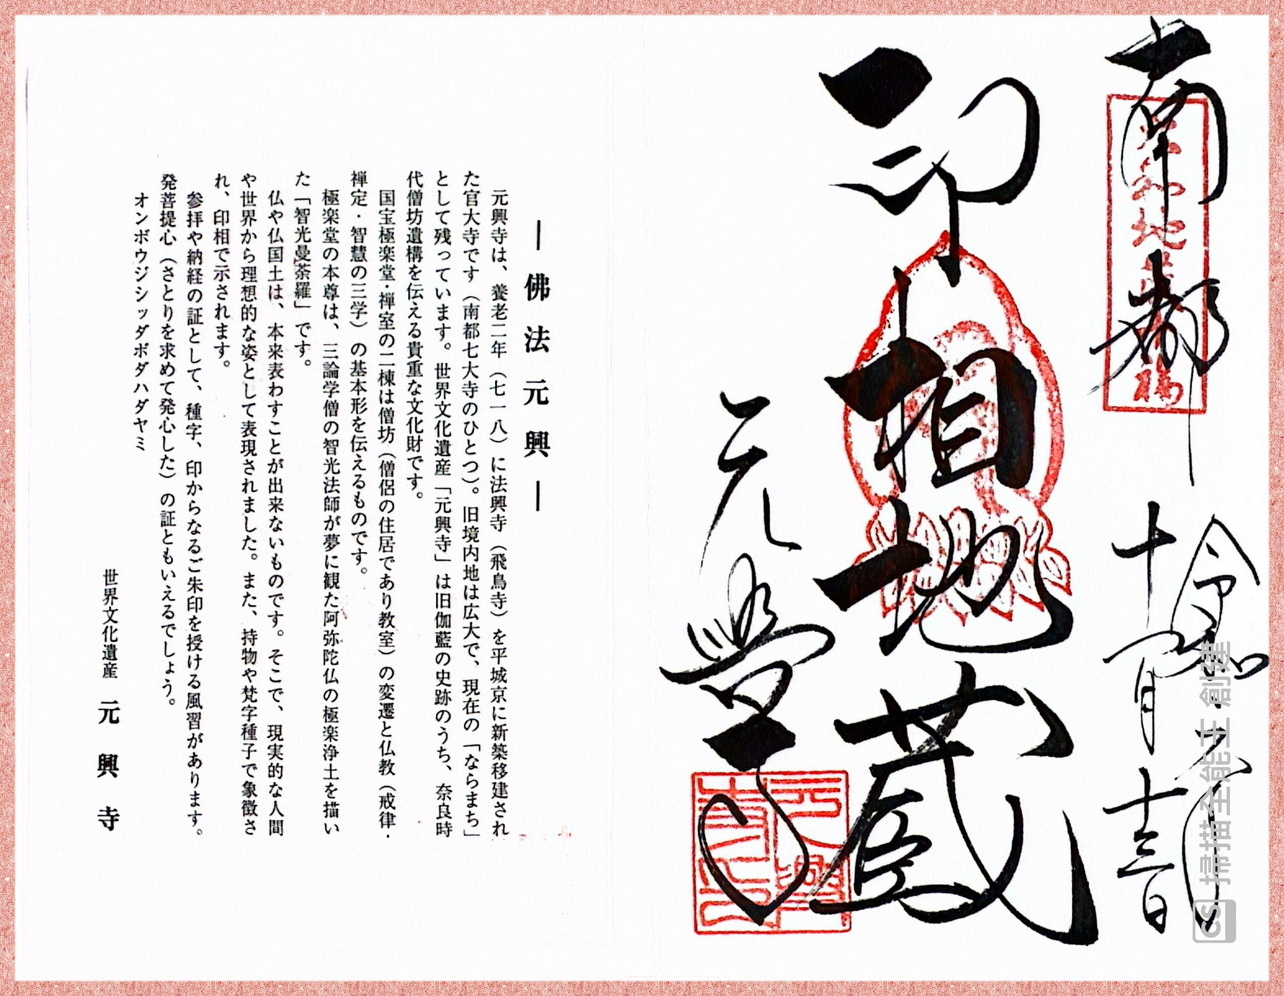 南都
令和六年
十一月十三日
印相地蔵
元興寺
― 佛法元興 ―
元興寺は、養老二年（七一八）に法興寺（飛鳥寺）を平城京に新築移建され
た官大寺です（南都七大寺のひとつ）。旧境内地は広大で、現在の「ならまち」
として残っています。世界文化遺産「元興寺」は旧伽藍の史跡のうち、奈良時
代僧坊遺構を伝える貴重な文化財です。
国宝極楽堂・禅室の二棟は僧坊（僧侶の住居であり教室）の変遷と仏教（戒律・
禅定・智慧の三学）の基本形を伝えるものです。
極楽堂の本尊は、三論学僧の智光法師が夢に観た阿弥陀仏の極楽浄土を描い
た「智光曼荼羅」です。
仏や仏国土は、本来表わすことが出来ないものです。そこで、現実的な人間
や世界から理想的な姿として表現されました。また、持物や梵字種子で象徴さ
れ、印相で示されます。
参拝や納経の証として、種字、印からなるご朱印を授ける風習があります。
発菩提心（さとりを求めて発心した）の証ともいえるでしょう。
オンボウジシッダボダハダヤミ
世界文化遺産 元興寺
CS 掃描全能王 創建